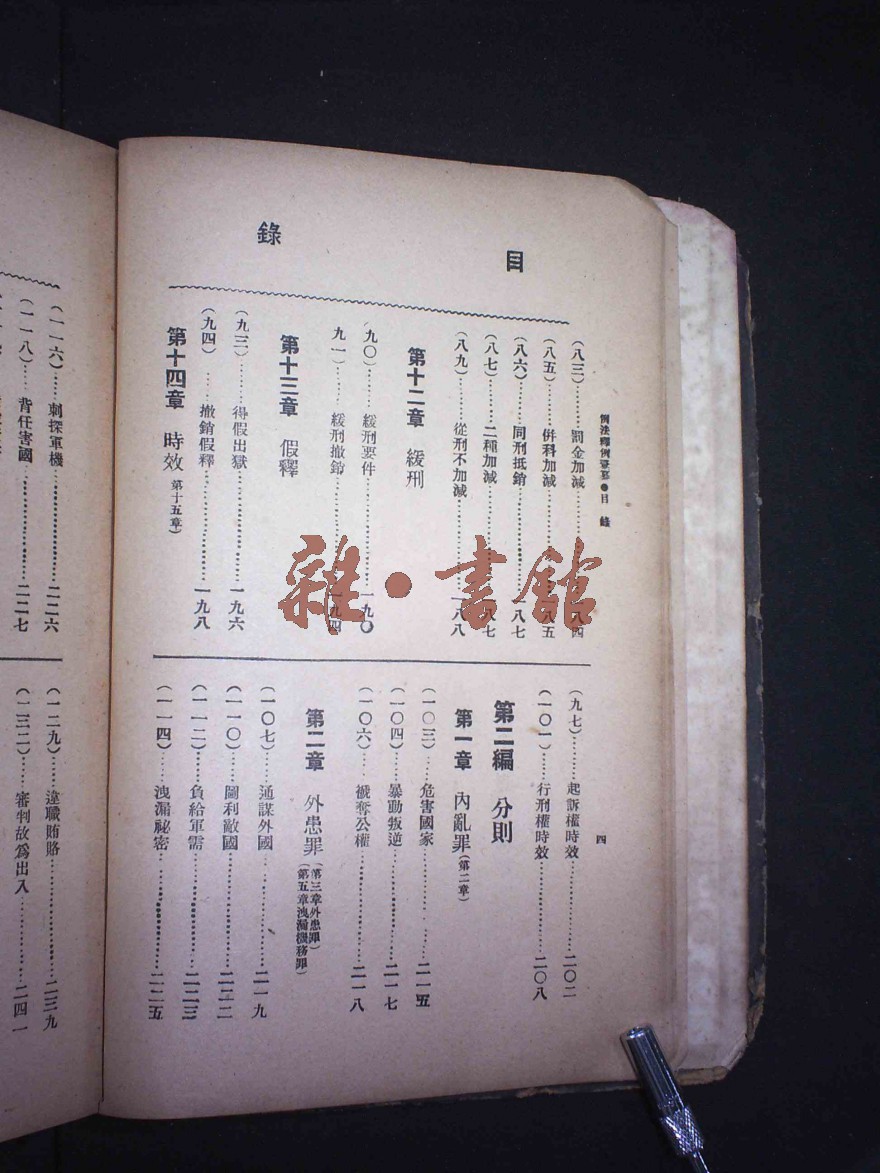 目錄
目錄
(八三)………罰金加減………一八四
(八五)………併科加減………一八五
(八六)………同刑抵銷………一八七
(八七)………二種加減………一八七
(八九)………從刑不加減………一八八
第十二章 緩刑
九〇)………緩刑要件………一九〇
九一)………緩刑撤銷………一九四
第十三章 假釋
(九三)………得假出獄………一九六
(九四)………撤銷假釋………一九八
第十四章 時效(第十五章)
四
(九七)………起訴權時效………二〇二
(一〇一)………行刑權時效………二〇八
第二編 分則
第一章 內亂罪(第二章)
(一〇三)………危害國家………二一五
(一〇四)………暴動叛逆………二一七
(一〇六)………褫奪公權………二一八
第二章 外患罪(第三章外患罪)
(第五章洩漏機務罪)
(一〇七)………通謀外國………二一九
(一一〇)………圖利敵國………二二二
(一一二)………負給軍需………二二三
(一一四)………洩漏祕密………二二五
(一一六)………刺探軍機………二二六
(一一八)………背任害國………二二七
(一二九)………違職賄賂………二三九
(一三二)………審判故為出入………二四一
雜·書館